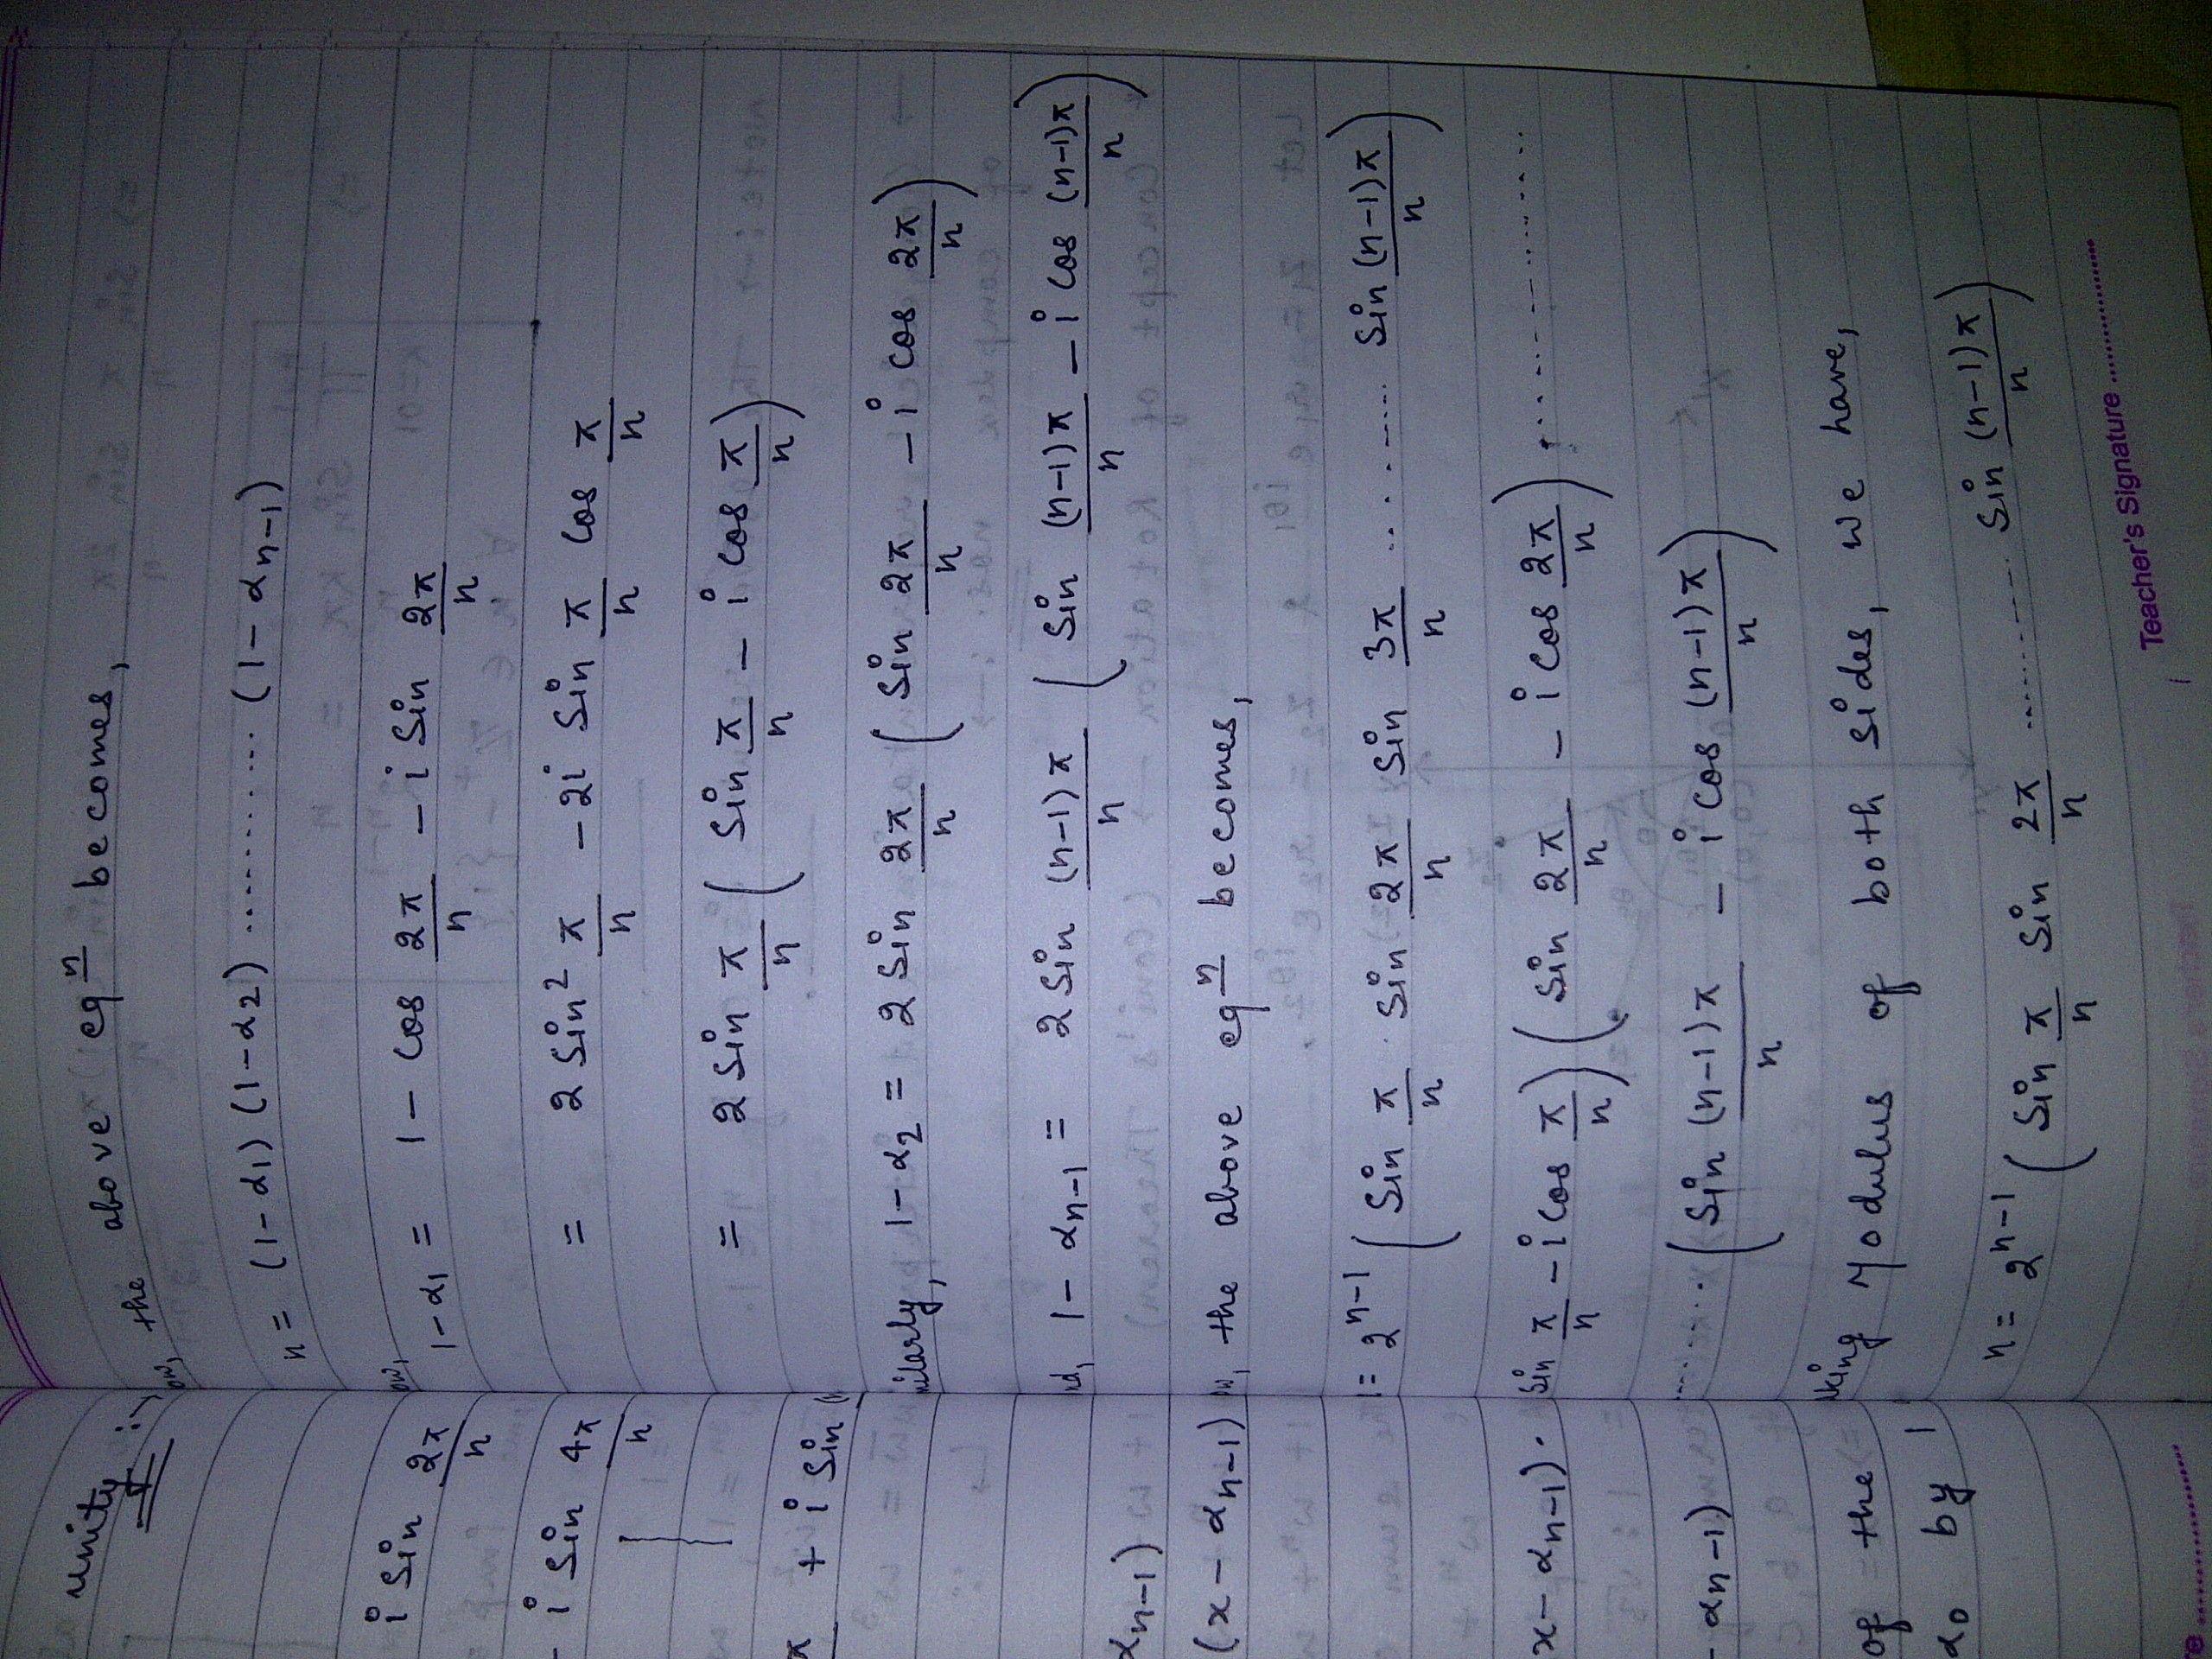 unity :-
i sin 2π/n
- i sin 4π/n
π + i sin (
αn-1)
(x - αn-1)
x - αn-1) .
- αn-1)
of the
α0 by 1
ow, the above eqn becomes,
n = (1-α1) (1-α2) ............ (1-αn-1)
ow,
1-α1 = 1 - cos 2π/n - i sin 2π/n
= 2 sin² π/n - 2i sin π/n cos π/n
= 2 sin π/n ( sin π/n - i cos π/n )
milarly, 1-α2 = 2 sin 2π/n ( sin 2π/n - i cos 2π/n )
nd, 1 - αn-1 = 2 sin (n-1)π/n ( sin (n-1)π/n - i cos (n-1)π/n )
ow, the above eqn becomes,
= 2^n-1 ( sin π/n sin 2π/n sin 3π/n .......... sin (n-1)π/n )
sin π/n - i cos π/n ) ( sin 2π/n - i cos 2π/n ) ..............
........ ( sin (n-1)π/n - i cos (n-1)π/n )
king Modulus of both sides, we have,
n = 2^n-1 ( sin π/n sin 2π/n .......... sin (n-1)π/n )
Teacher's Signature ....................
re ....................